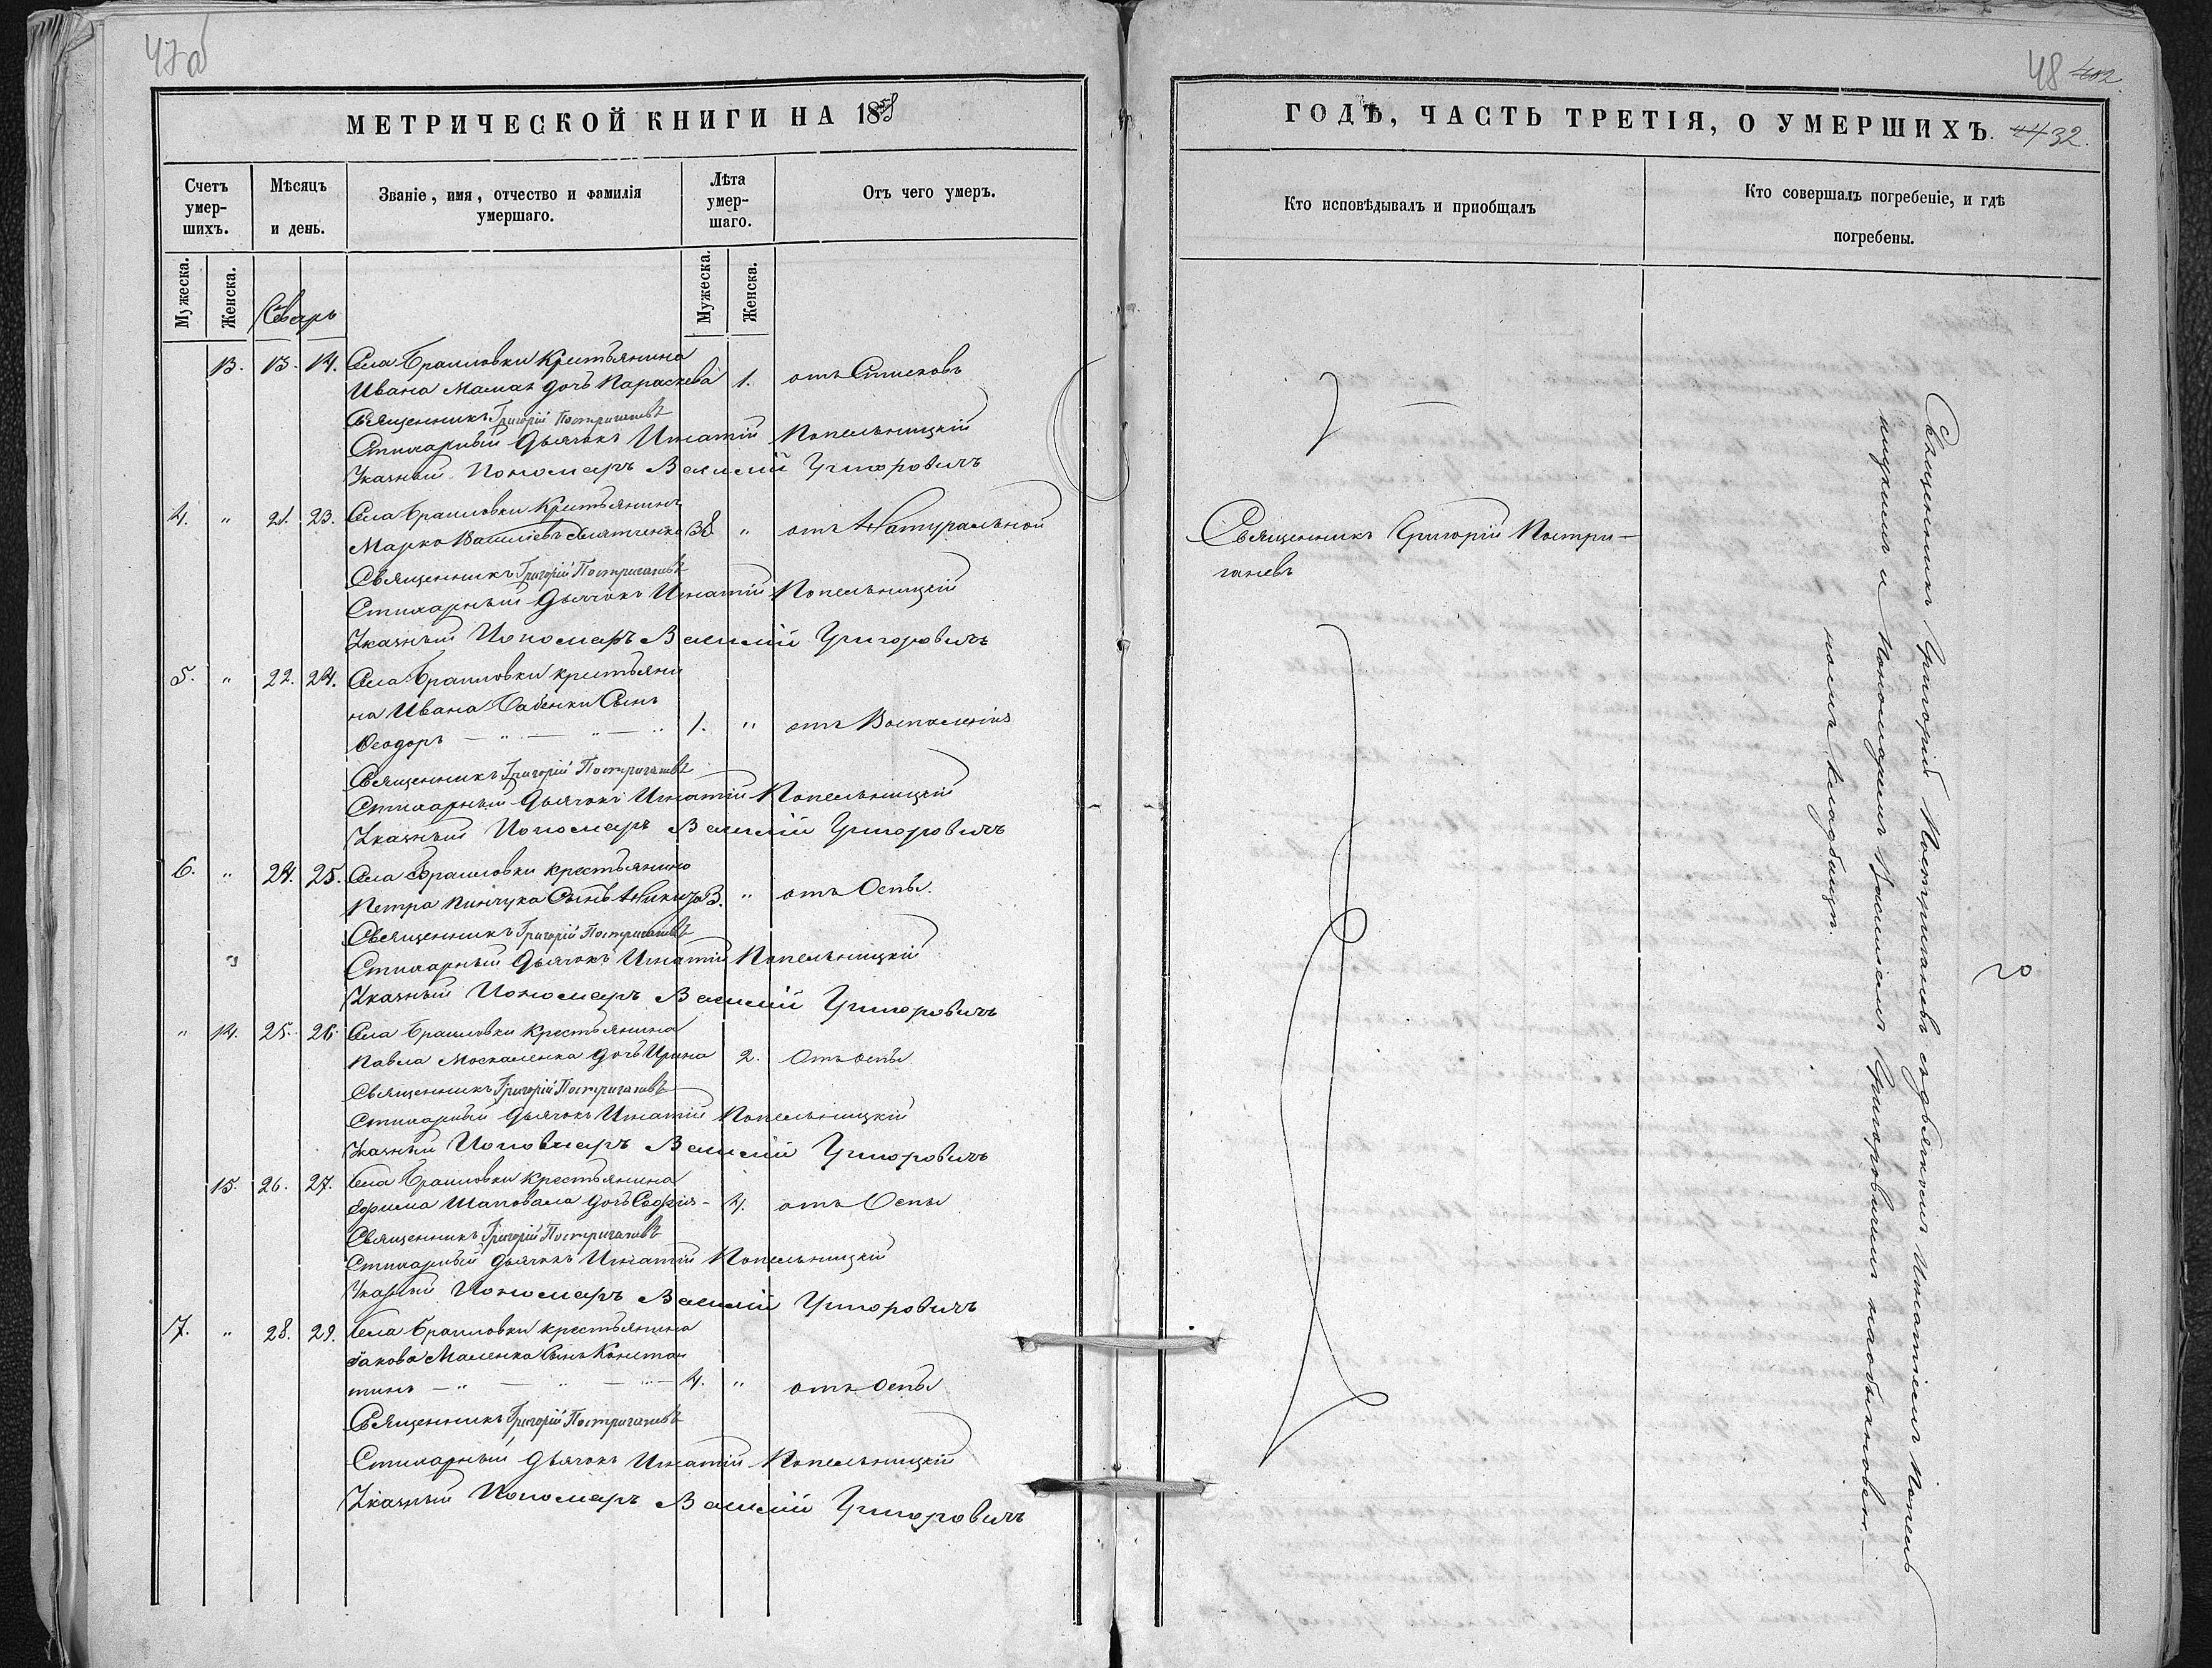 47об
МЕТРИЧЕСКОЙ КНИГИ НА 1858
Счетъ умер-шихъ.
Мѣсяцъ и день.
Званіе, имя, отчество и фамилія умершаго.
Лѣта умер-шаго.
Отъ чего умеръ.
Мужеска.
Женска.
Мужеска.
Женска.
13. 13. 14. Села Браиловки Крестьянина
Ивана дочь Параскева 1. отъ
Священникъ Григорій Постригачевъ
Стихарный Дьячокъ Игнатій Попельницкій
Указный Пономарь Василій Григоровичъ
4. " 21. 23. Села Браиловки Крестьянинъ
Марко 38 " отъ Натуральной
Священникъ Григорій Постригачевъ
Стихарный Дьячокъ Игнатій Попельницкій
Указный Пономарь Василій Григоровичъ
5. " 22. 24. Села Браиловки крестьяни
на Ивана Бабенки Сынъ
Ѳеодоръ — " — " — " 1. " отъ Воспаленія
Священникъ Григорій Постригачевъ
Стихарный Дьячокъ Игнатій Попельницкій
Указный Пономарь Василій Григоровичъ
6. " 24. 25. Села Браиловки крестьянина
Петра Пинчука Сынъ Никита 3. " отъ Оспы.
Священникъ Григорій Постригачевъ
Стихарный Дьячокъ Игнатій Попельницкій
Указный Пономарь Василій Григоровичъ
" 14. 25. 26. Села Браиловки Крестьянина
Павла Москаленка дочь Ирина 2. Отъ оспы
Священникъ Григорій Постригачевъ
Стихарный Дьячокъ Игнатій Попельницкій
Указный Пономарь Василій Григоровичъ
15. 26. 27. Села Браиловки Крестьянина
Ефима Шаповала дочь Софія - 4. отъ Оспы
Священникъ Григорій Постригачевъ
Стихарный Дьячокъ Игнатій Попельницкій
Указный Пономарь Василій Григоровичъ
7. " 28. 29. Села Браиловки крестьянина
Якова Сынъ Констан
тинъ — " — " — " — 4. " отъ Оспы
Священникъ Григорій Постригачевъ
Стихарный Дьячокъ Игнатій Попельницкій
Указный Пономарь Василій Григоровичъ
48 402
ГОДѢ, ЧАСТЬ ТРЕТІЯ, О УМЕРШИХЪ. 32.
Кто исповѣдывалъ и приобщалъ
Кто совершалъ погребеніе, и гдѣ погребены.
Священникъ Григорій Постри-
гачевъ
Священникъ Григорій Постригачевъ съ дьячкомъ Игнатіемъ Попель
ницкимъ и Пономаремъ Василіемъ Григоровичемъ наобыкновен-
номъ кладбищѣ.